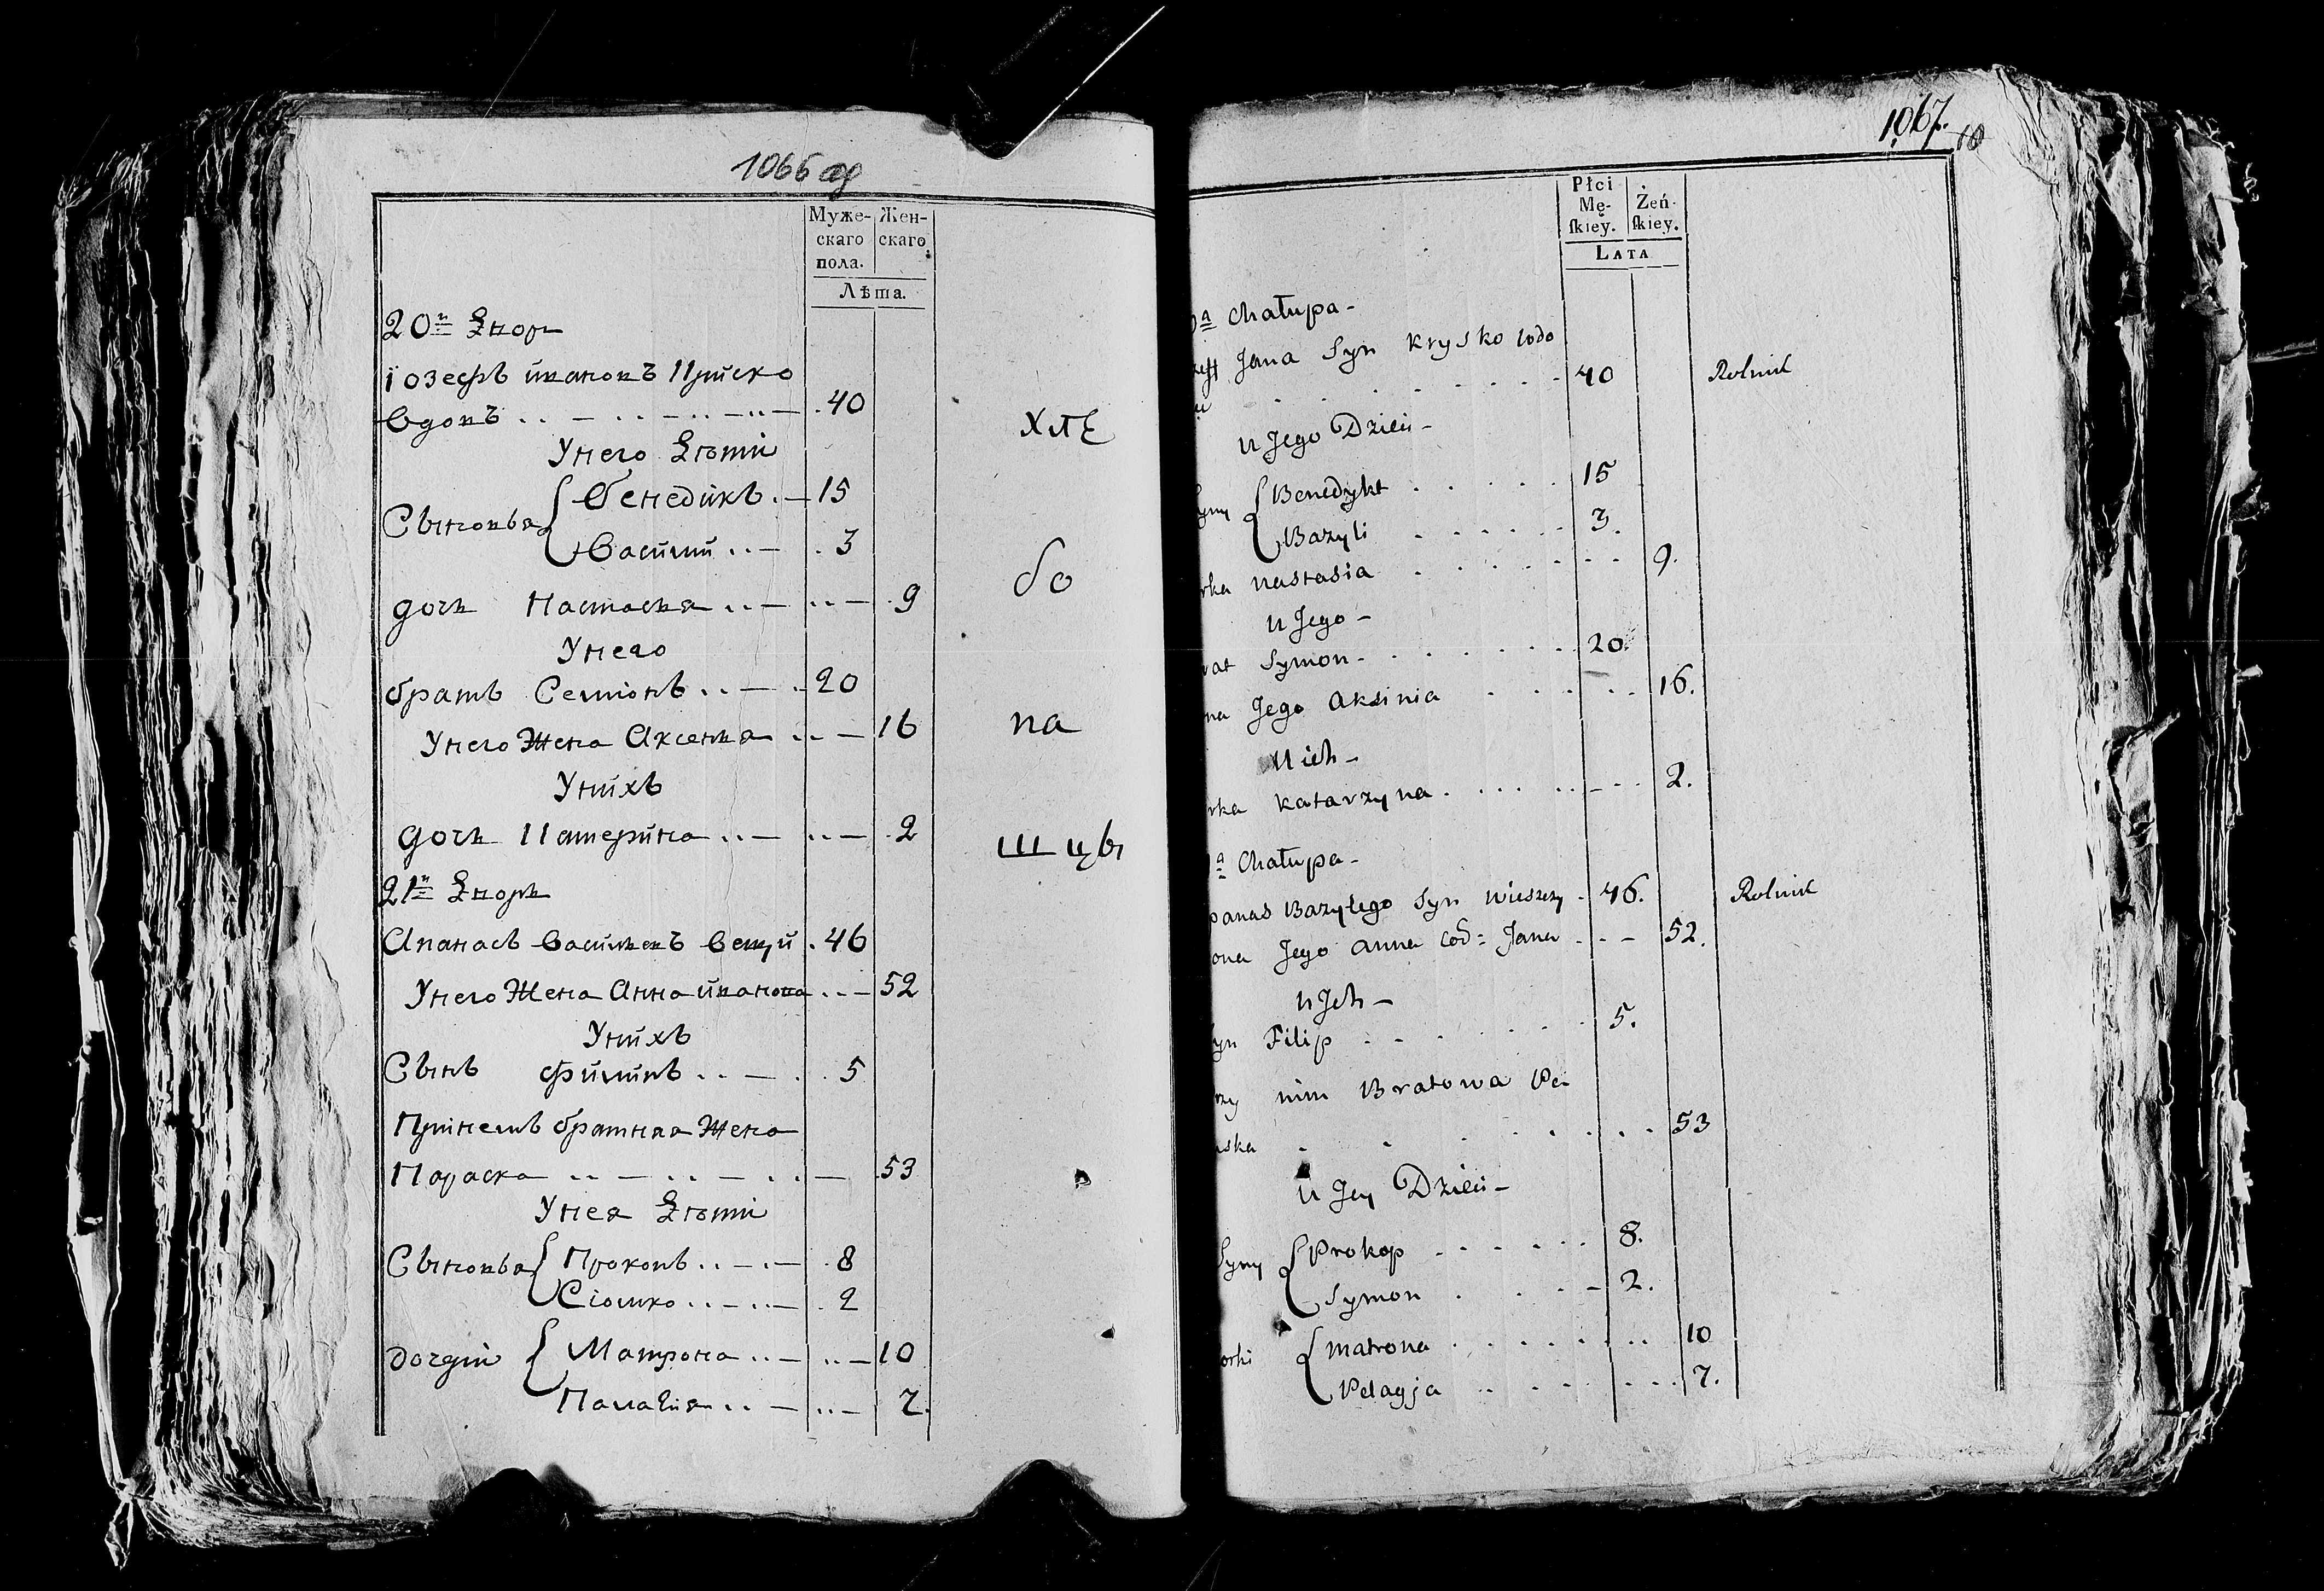 1066 об
Муже-
скаго
пола.
Жен-
скаго
Лѣта.
20й Дворъ
іозефъ ивановъ Криско
вдовъ 40
Унего Дѣти
Сыновья Бенедикъ 15
Василий 3
дочь Настасья 9
Унего
братъ Семіонъ 20
Унего Жена Аксенья 16
Унихъ
дочь Катерина 2
21й Дворъ
Апанасъ васильевъ вещий 46
Унего Жена Анна иванова 52
Унихъ
Сынъ Филипъ 5
Принемъ братняя Жена
Параска 53
Унея Дѣти
Сыновья Прокопъ 8
Сіомко 2
дочери Матрона 10
Палагія 7.
хлѣ
бо
па
шцы
1067.
10
Płci
Mę-
skiey.
Żeń-
skiey.
LATA
a Chałupa-
zeff Jana Syn Krysko wdo
40 Rolnik
u Jego Dzieci-
Syny Benedykt 15
Bazyli 3.
rka nastasia 9.
u Jego-
rat Symon 20.
na Jego Aksinia 16.
u ich-
rka Katarzyna 2.
a Chałupa-
panas Bazylego Syn Wieszczy 46. Rolnik
ona Jego anna cod: Jana 52.
u Jch-
yn Filip 5.
rzy nim Bratowa Pa-
aska 53
u Jey Dzieci-
Syny Prokop 8.
Symon 2.
orki matrona 10
Pelagja 7.